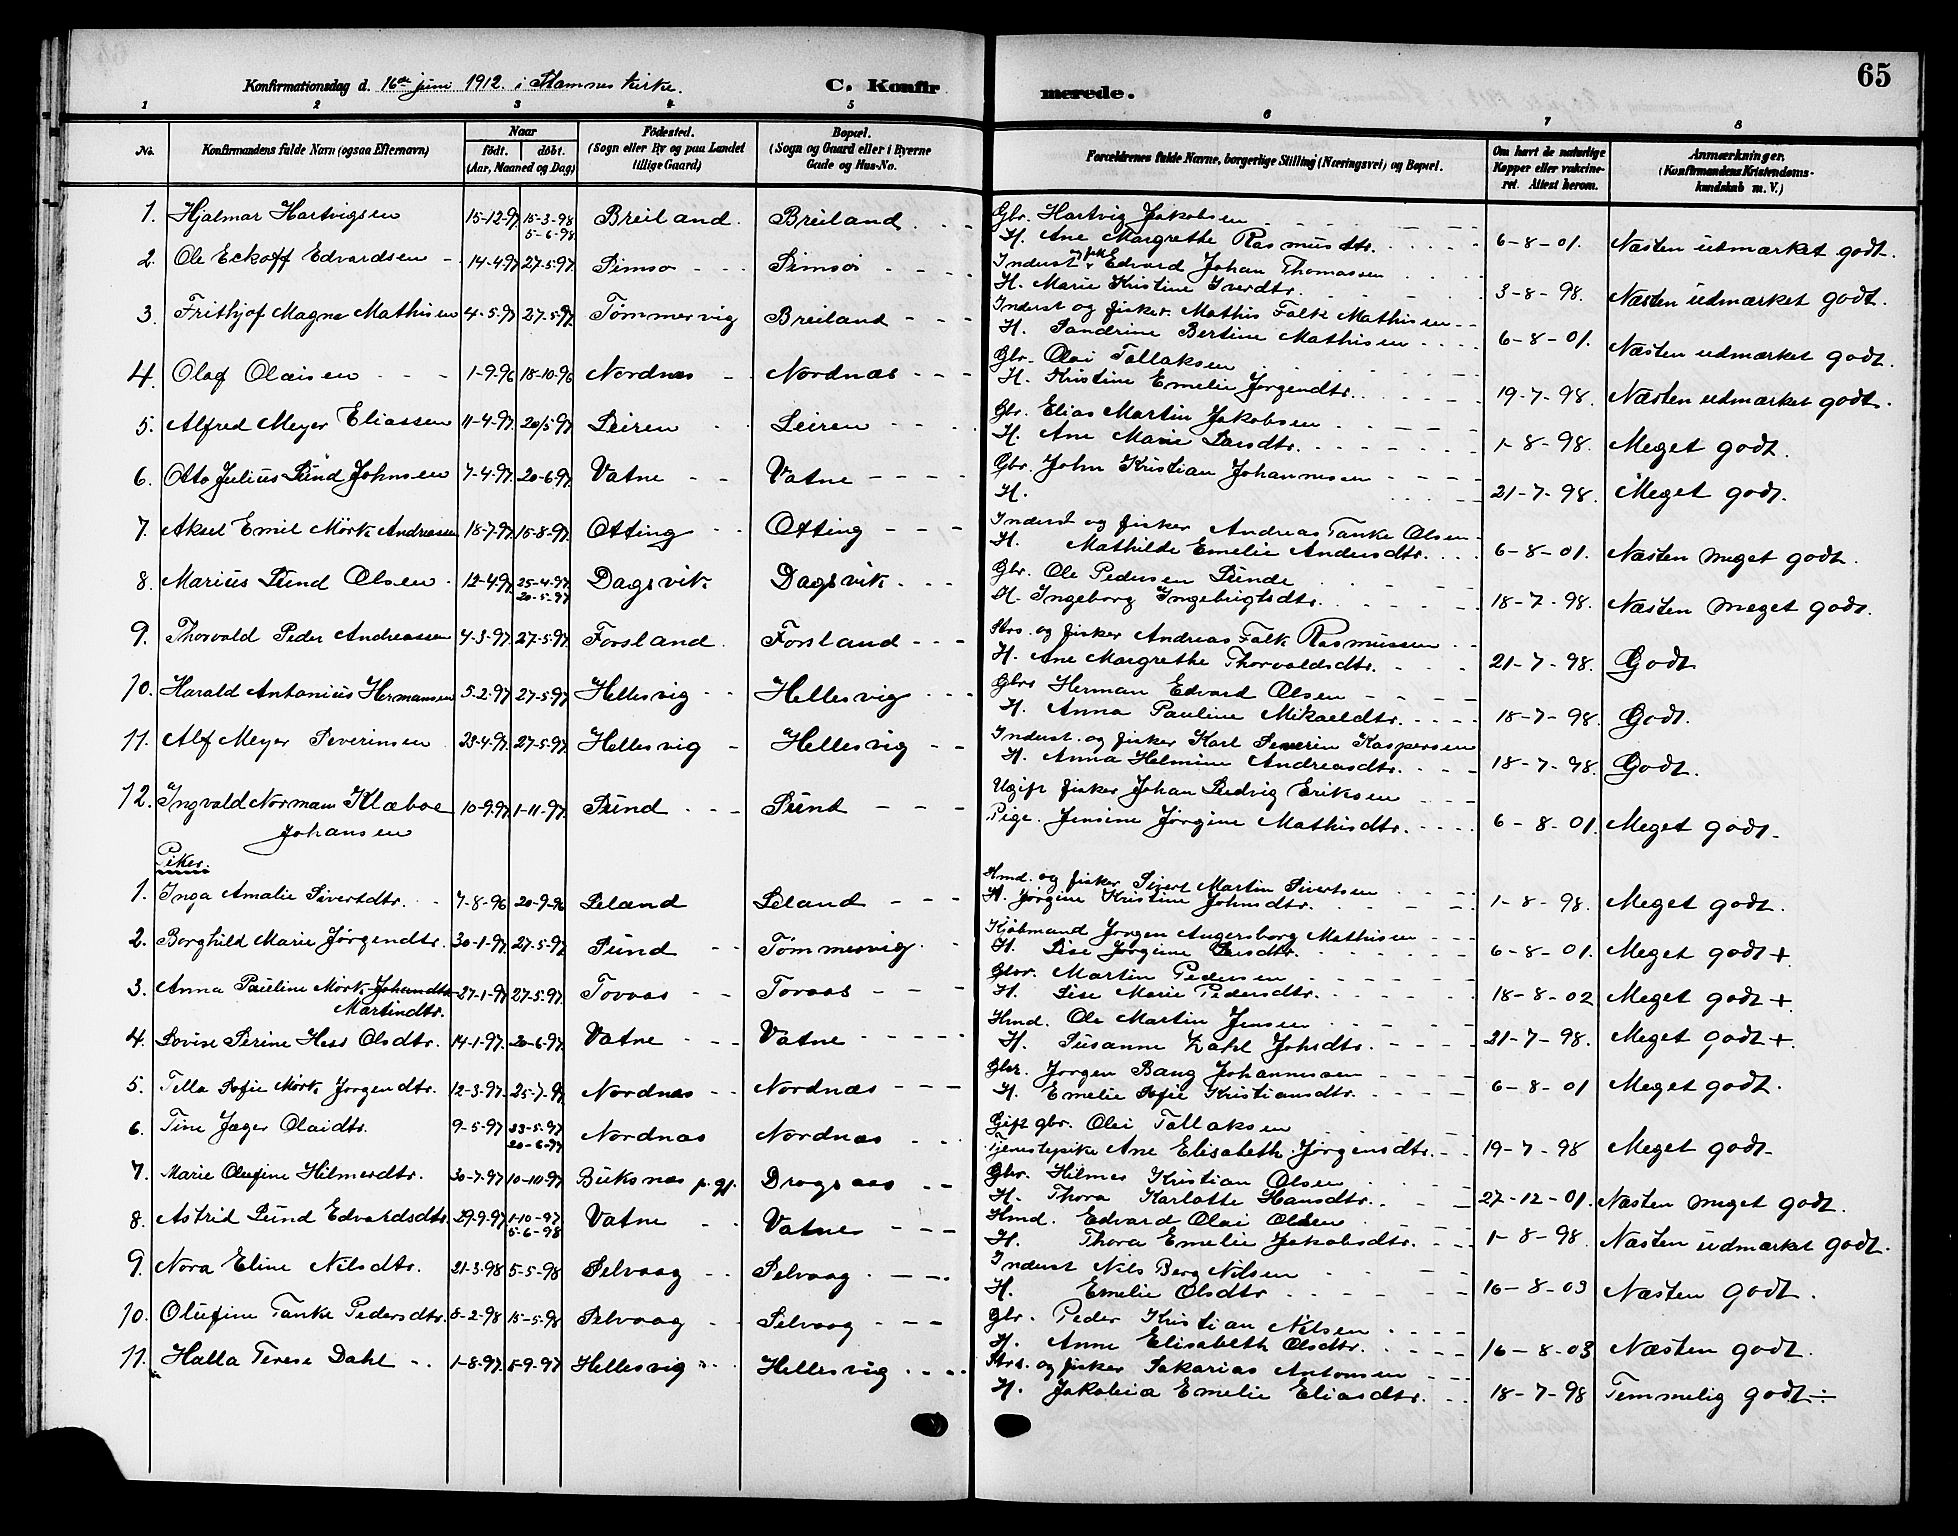 65
Konfirmationsdag d. 16de juni 1912. i Stamnes kirke.
C. Konfirmerede.
1 2 3 4 5 6 7 8
No.
Konfirmandens fulde Navn (ogsaa Efternavn)
Naar
födt. döbt.
(Aar, Maaned og Dag)
Födested.
(Sogn eller By og paa Landet
tillige Gaard)
Bopæl.
(Sogn og Gaard eller i Byerne
Gade og Hus-No.
Forældrenes fulde Navne, borgerlige Stilling (Næringsvei) og Bopæl.
Om havt de naturlige
Kopper eller vakcine-
ret. Attest herom.
Anmærkninger.
(Konfirmandens Kristendoms-
kundskab m. V.)
1. Hjalmar Hartvigsen 15-12-97 15-3-98 5-6-98 Breiland. Breiland. Gbr. Hartvig Jakobsen
H. Ane Margrethe Rasmusdtr. 6-8-01. Næsten udmærket godt.
2. Ole Eckoff Edvardsen 14-4-97 27-5-97. Simsø Simsø Inderst og fisk Edvard Johan Thomassen
H. Marie Kristine Iverdtr. 3-8-98. Næsten udmærket godt.
3. Frithjof Magne Mathisen 4-5-97 27-5-97. Tömmervig Breiland Inderst og fisker. Mathis Falk Mathisen
H. Sandrine Bertine Mathisen 6-8-01. Næsten udmærket godt.
4. Olaf Olaisen 1-9-96 18-10-96 Nordnæs Nordnæs Gbr. Olai Tollaksen
H. Kristine Emelie Jørgendtr. 19-7-98. Næsten udmærket godt.
5. Alfred Meyer Eliassen 11-4-97 20/5-97. Leiren Leiren Gbr. Elias Martin Jakobsen
H. Ane Marie Larsdtr. 1-8-98. Meget godt.
6. Otto Julius Lund Johnsen 7-4-97. 20-6-97. Vatne Vatne Gbr. John Kristian Johannesen
H. 21-7-98. Meget godt.
7. Aksel Emil Mörk Andreassen 18-7-97 15-8-97. Otting Otting Inderst og fisker Andreas Tanke Olsen
H. Mathilde Emelie Andersdtr. 6-8-01. Næsten meget godt.
8. Marius Lund Olsen 12-4-97. 25-4-97. 20-5-97 Dagsvik Dagsvik Gbr. Ole Pedersen Lunde
H. Ingeborg Ingebrigtsdtr. 18-7-98. Næsten meget godt.
9. Thorvald Peder Andreassen 4-3-97. 27-5-97. Forsland. Forsland Strs. og fisker Andreas Falk Rasmussen
H. Ane Margrethe Thorvaldsdtr. 21-7-98. Godt
10. Harald Antonius Hermansen 5-2-97. 27-5-97. Hellesvig Hellesvig Gbr Herman Edvard Olsen
H. Anna Pauline Mikaeldtr. 18-7-98. Godt.
11. Alf Meyer Severinsen 23-4-97. 27-5-97. Hellesvig Hellesvig Inderst. og fisker Karl Severin Kaspersen
H. Anna Helmine Andreasdtr. 18-7-98. Godt.
12. Ingvald Norman Klæboe
Johansen 10-9-97. 1-11-97. Sund Sund Ugift fisker Johan Ludvig Eriksen
Pige. Jensine Jörgine Mathisdtr. 6-8-01. Meget godt.
Piker.
1. Inga Amalie Sivertdtr. 7-8-96 20-9-96 Leland Leland Hmd. og fisker Sivert Martin Sivertsen
H. Jörgine Kristine Johnsdtr. 1-8-98. Meget godt.
2. Borghild Marie Jørgendtr. 30-1-97. 27-5-97. Sund Tømmervig Kjöbmand Jørgen Angersborg Mathisen
H. Lise Jørgine Larsdtr. 6-8-01. Meget godt +
3. Anna Pauline Mørk Johandtr
Martindtr. 27-1-97 27-5-97. Tovaas Tovaas Gbr. Martin Pedersen
H. Lise Marie Pedersdtr. 18-8-02 Meget godt +
4. Lovise Perine Hess Olsdtr. 14-1-97. 20-6-97. Vatne Vatne Hmd. Ole Martin Jensen
H. Susanne Zahl Johsdtr. 21-7-98. Meget godt +.
5. Tella Sofie Mörk Jørgendtr. 12-3-97. 25-7-97 Nordnæs Nordnæs Gbr. Jørgen Bang Johannesen
H. Emelie Sofie Kristiansdtr. 6-8-01 Meget godt.
6. Tine Jæger Olaidtr. 9-5-97 23-5-97 20-6-97 Nordnæs Nordnæs Gift gbr. Olai Tollaksen
Tjenestepike Ane Elisabeth Jørgensdtr. 19-7-98 Meget godt.
7. Marie Olufine Hilmerdtr. 30-7-97 10-10-97 Buksnæs p.gj. Dragsaas Gbr. Hilmer Kristian Olsen
H. Thora Karlotte Hansdtr. 27-12-01. Næsten meget godt.
8. Astrid Lund Edvardsdtr. 29-9-97. 1-10-97 5-6-98 Vatne Vatne Hmd. Edvard Olai Olsen
H. Thora Emelie Jakobsdtr. 1-8-98 Næsten udmærket godt.
9. Nora Eline Nilsdtr. 21-3-98 5-5-98 Selvaag Selvaag. Inderst Nils Berg Nilsen
H. Emelie Olsdtr 16-8-03 Næsten godt.
10. Olufine Tanke Pedersdtr. 8-2-98 15-5-98 Selvaag Selvaag Gbr. Peder Kristian Nilsen
H. Anne Elisabeth Olsdtr. 16-8-03 Næsten godt.
11. Halla Terese Dahl 1-8-97. 5-9-97. Hellesvig Hellesvig Strs. og fisker Sakarias Antonsen
H. Jakobia Emelie Eliasdtr. 18-7-98 Temmelig godt ÷